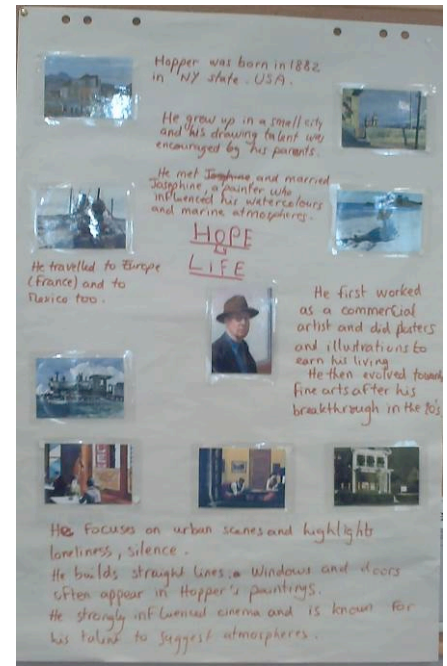 Hopper was born in 1882
in NY state. USA.
He grew up in a small city
and his drawing talent was
encouraged by his parents.
He met Josephine and married
Josephine, a painter who
influenced his watercolours
and marine atmospheres.
HOPE
LIFE
He travelled to Europe
(France) and to
Mexico too.
He first worked
as a commercial
artist and did posters
and illustrations to
earn his living
He then evolved towards
fine arts after his
breakthrough in the 20's
He focuses on urban scenes and highlight
loneliness, silence.
He builds straight lines. Windows and doors
often appear in Hopper's paintings.
He strongly influenced cinema and is known for
his talent to suggest atmospheres.